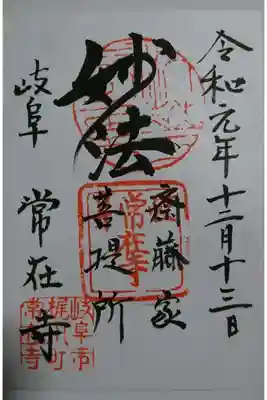 令和元年十二月十三日
斎藤家
菩提所
妙法
岐阜
常在寺
常在寺
岐阜市
梶川町
常在寺